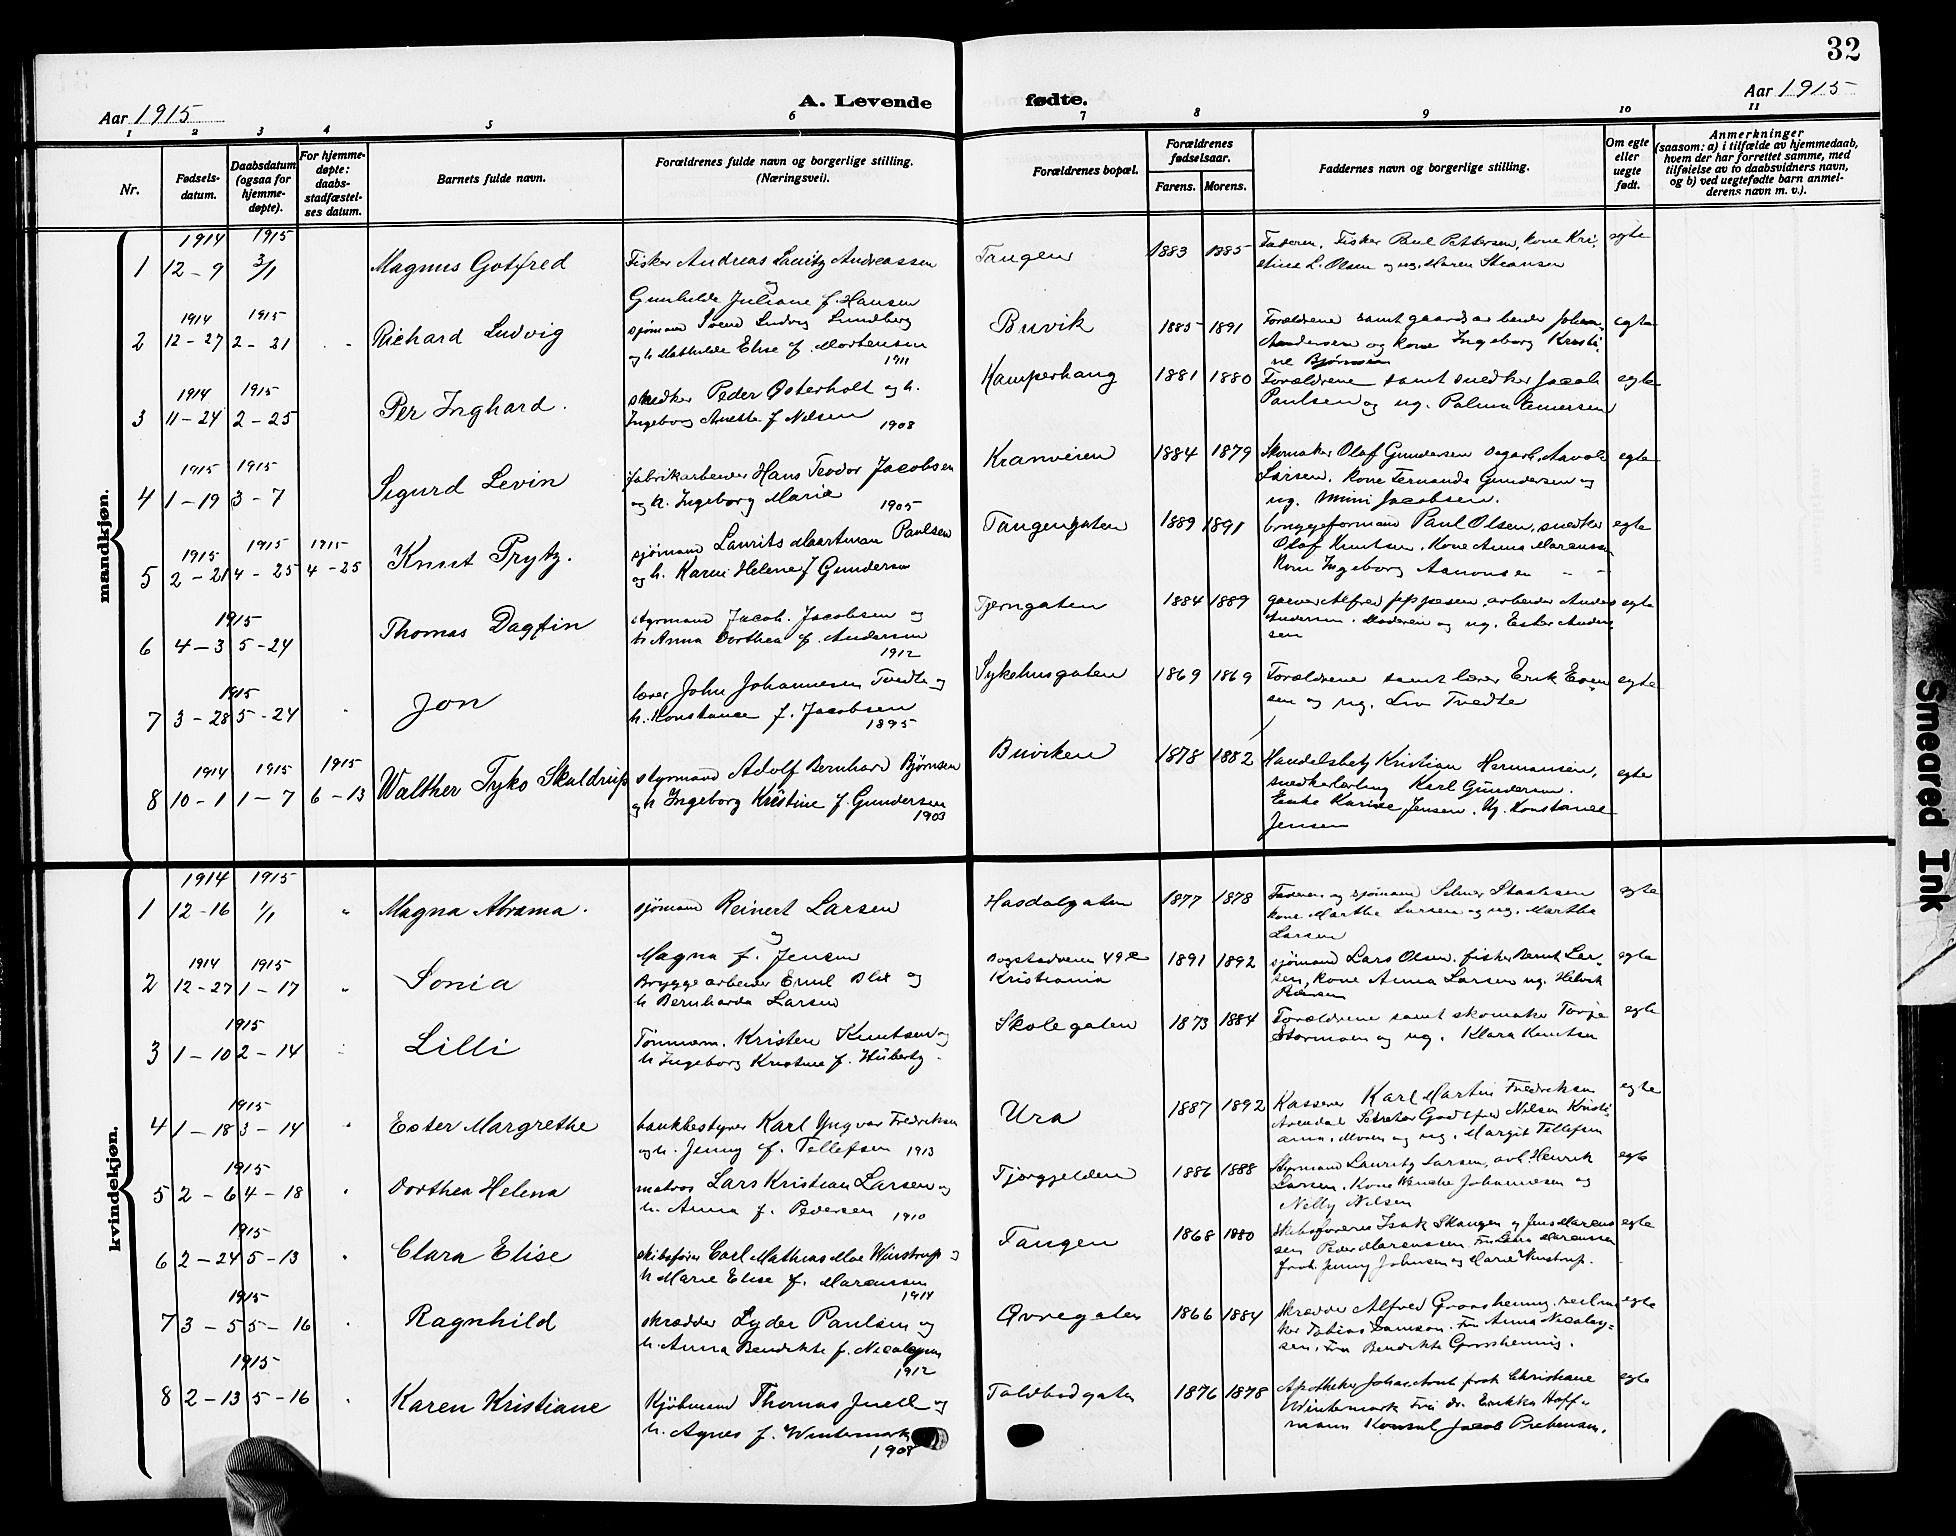 32
Aar 1915
A. Levende fødte.
Aar 1915
1 2 3 4 5 6 7 8 9 10 11
Nr.
Fødsels-
datum.
Daabsdatum
(ogsaa for
hjemme-
døpte).
For hjemme-
døpte:
daabs-
stadfæstel-
ses datum.
Barnets fulde navn.
Forældrenes fulde navn og borgerlige stilling.
(Næringsvei).
Forældrenes bopæl.
Forældrenes
fødselsaar.
Farens. Morens.
Faddernes navn og borgerlige stilling.
Om egte
eller
uegte
født.
Anmerkninger
(saasom: a) i tilfælde av hjemmedaab,
hvem der har forrettet samme, med
tilføielse av to daabsvidners navn,
og b) ved uegtefødte barn anmel-
derens navn m. v.).
mandkjøn.
1914 1915
1 12-9 3/1 Magnus Gotfred
Fisker Andreas Lauritz Andreassen
og
Gunhilde Juliane f. Hansen
Tangen 1883 1885
Faderen, Fisker Paul Pettersen, kone Kri-
stine L. Olsen og ug. Maren
egte
1914 1915
2 12-27 2-21 Richard Ludvig
sjømand Svend Ludvig Lundberg
og h. Mathilde Elise f. Mortensen
1911
Buvik 1885 1891
Forældrene samt gaardsarbeider Johan
Andersen og kone Ingeborg Kristi-
ne Bjørnsen
egte
1914 1915
3 11-24 2-25 Per Inghard.
snedker Peder Osterholt og h.
Ingeborg Anette f. Nilsen
1908
Kamperhaug 1881 1880
Forældrene samt snedker Jacob
Paulsen og ug. Palma
egte
1915 1915
4 1-19 3-7 Sigurd Levin
fabrikarbeider Hans Teodor Jacobsen
og h. Ingeborg Marie
1905
Kranveien 1884 1879
Skomaker Olaf Gundersen
Larsen. kone Fernanda Gundersen og
ug. Mimi Jacobsen.
egte
1915 1915 1915
5 2-21 4-25 4-25 Knut Prytz.
sjømand Laurits Maartman Paulsen
og h. Karen Helene f Gundersen
Tangengaten 1889 1891
bryggeformand Paul Olsen, snedker
Olaf Knutsen. Kone Anna
Kone Ingeborg Aanonsen
egte
1915
6 4-3 5-24 Thomas Dagfin
styrmand Jacob. Jacobsen og
h. Anna Dorthea f. Andersen
1912
Tjerngaten 1884 1889
Alfred Jeppesen, arbeider Anders
Andersen. Moderen og ug. Ester Ander-
sen
egte
1915
7 3-28 5-24 Jon
lærer John Johannesen Tvedte og
h. Konstance f. Jacobsen
1895
Sykehusgaten 1869 1869
Forældrene samt lærer Erik Even-
sen og ug. Liv Tvedte
egte
1914 1915 1915
8 10-1 1-7 6-13 Walther Tyko Skuldrup
styrmand Adolf Bernhard Bjørnsen
og h Ingeborg Kristine f. Gundersen
1903
Buviken 1878 1882
Handelsbetj Kristian Hermansen,
snedkerlærling Karl Gundersen.
Enke Karine Jensen. Ug. Konstanse
Jensen
egte
kvindekjøn.
1914 1915
1 12-16 1/1 Magna Abrama.
sjømand Reinert Larsen
og
Magna f. Jensen
Hasdalgaten 1877 1878
Faderen og sjømand Selmer
kone Marthe Larsen og ug. Martha
Larsen
egte
1914 1915
2 12-27 1-17 Sonia
Bryggearbeider Emil Blix og
h Bernharda Larsen
49
Kristiania 1891 1892
sjømand Lars Olsen. fisker Bernt Lar-
sen, kone Anna Larsen ug.
egte
1915
3 1-10 2-14 Lilli
Tømmerm. Kristen Knutsen og
h Ingeborg Kristine f. Huberty
Skolegaten 1873 1884
Forældrene samt skomaker Torje
Stormoen og ug. Klara Knutsen
egte
1915
4 1-18 3-14 Ester Margrethe
bankbestyrer Karl Yngvar Fredriksen
og h. Jenny f. Tellefsen 1913
Ura 1887 1892
Kasserer Karl Martin Fredriksen
Arendal Sekretær Godtfred Nilsen Kristi-
ania, Moren og ug. Margit Tellefsen
egte
1915
5 2-6 4-18 Dorthea Helena
matros Lars Kristian Larsen og
h. Anna f. Pedersen 1910
Tjørgjelden 1886 1888
Styrmand Lauritz Larsen, Henrik
Larsen. Kone Johannesen og
Nelly Nilsen
egte
1915
6 2-24 5-13 Clara Elise
skibsfører Carl Mathias Moe Winstrup og
h Marie Elise f. Marcussen
1914
Tangen 1868 1880
Skibsførerne Isak Skangen og Jens Marcus-
sen Peder Marcussen. Fru Marcussen
frøk. Jenny Johnsen og Marie Winstrup.
egte
1915
7 3-5 5-16 Ragnhild
skrædder Lyder Paulsen og
h. Anna Bendikte f. Nicolaysen
1912
Øvregaten 1866 1884
skrædder Alfred Grosshennig, seilma-
ker Tobias Samson. Fru Anna Nicolay-
sen, Fru Bendikte Grosshennig.
egte
1915
8 2-13 5-16 Karen Kristiane
Kjøbmand Thomas Juell og
h. Agnes f. Wintermark
1908
Toldbodgaten 1876 1878
Apotheker Johas. frøk Christiane
Wintermark Fru dr. Hoff-
mann Konsul Jacob Prebensen.
egte
Smeared Ink